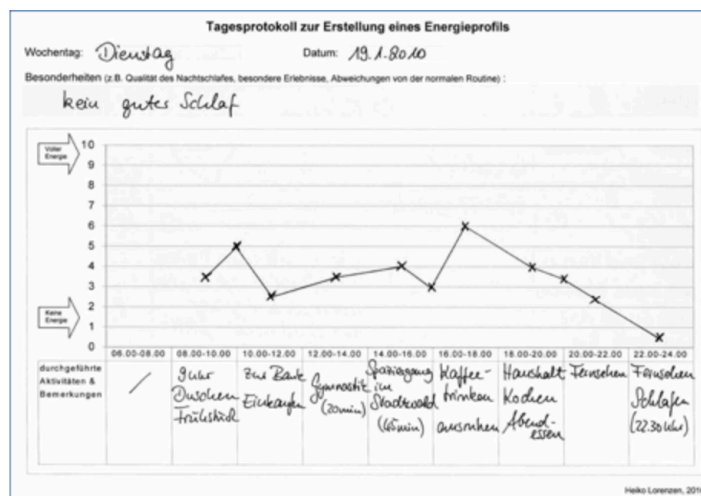 Tagesprotokoll zur Erstellung eines Energieprofils
Wochentag: Dienstag Datum: 19.1.2010
Besonderheiten (z.B. Qualität des Nachtschlafes, besondere Erlebnisse, Abweichungen von der normalen Routine) :
kein guter Schlaf
Voller
Energie
10
9
8
7
6
5
4
3
2
1
0
Keine
Energie
06.00-08.00 08.00-10.00 10.00-12.00 12.00-14.00 14.00-16.00 16.00-18.00 18.00-20.00 20.00-22.00 22.00-24.00
durchgeführte
Aktivitäten &
Bemerkungen
/
9 Uhr
Duschen
Frühstück
Zur Bank
Einkaufen
Gymnastik
(20min)
Spaziergang
im
Stadtwald
(45min)
Kaffee-
trinken
ausruhen
Haushalt
Kochen
Abend-
essen
Fernsehen
Fernsehen
Schlafen
(22.30 Uhr)
Heiko Lorenzen, 2010